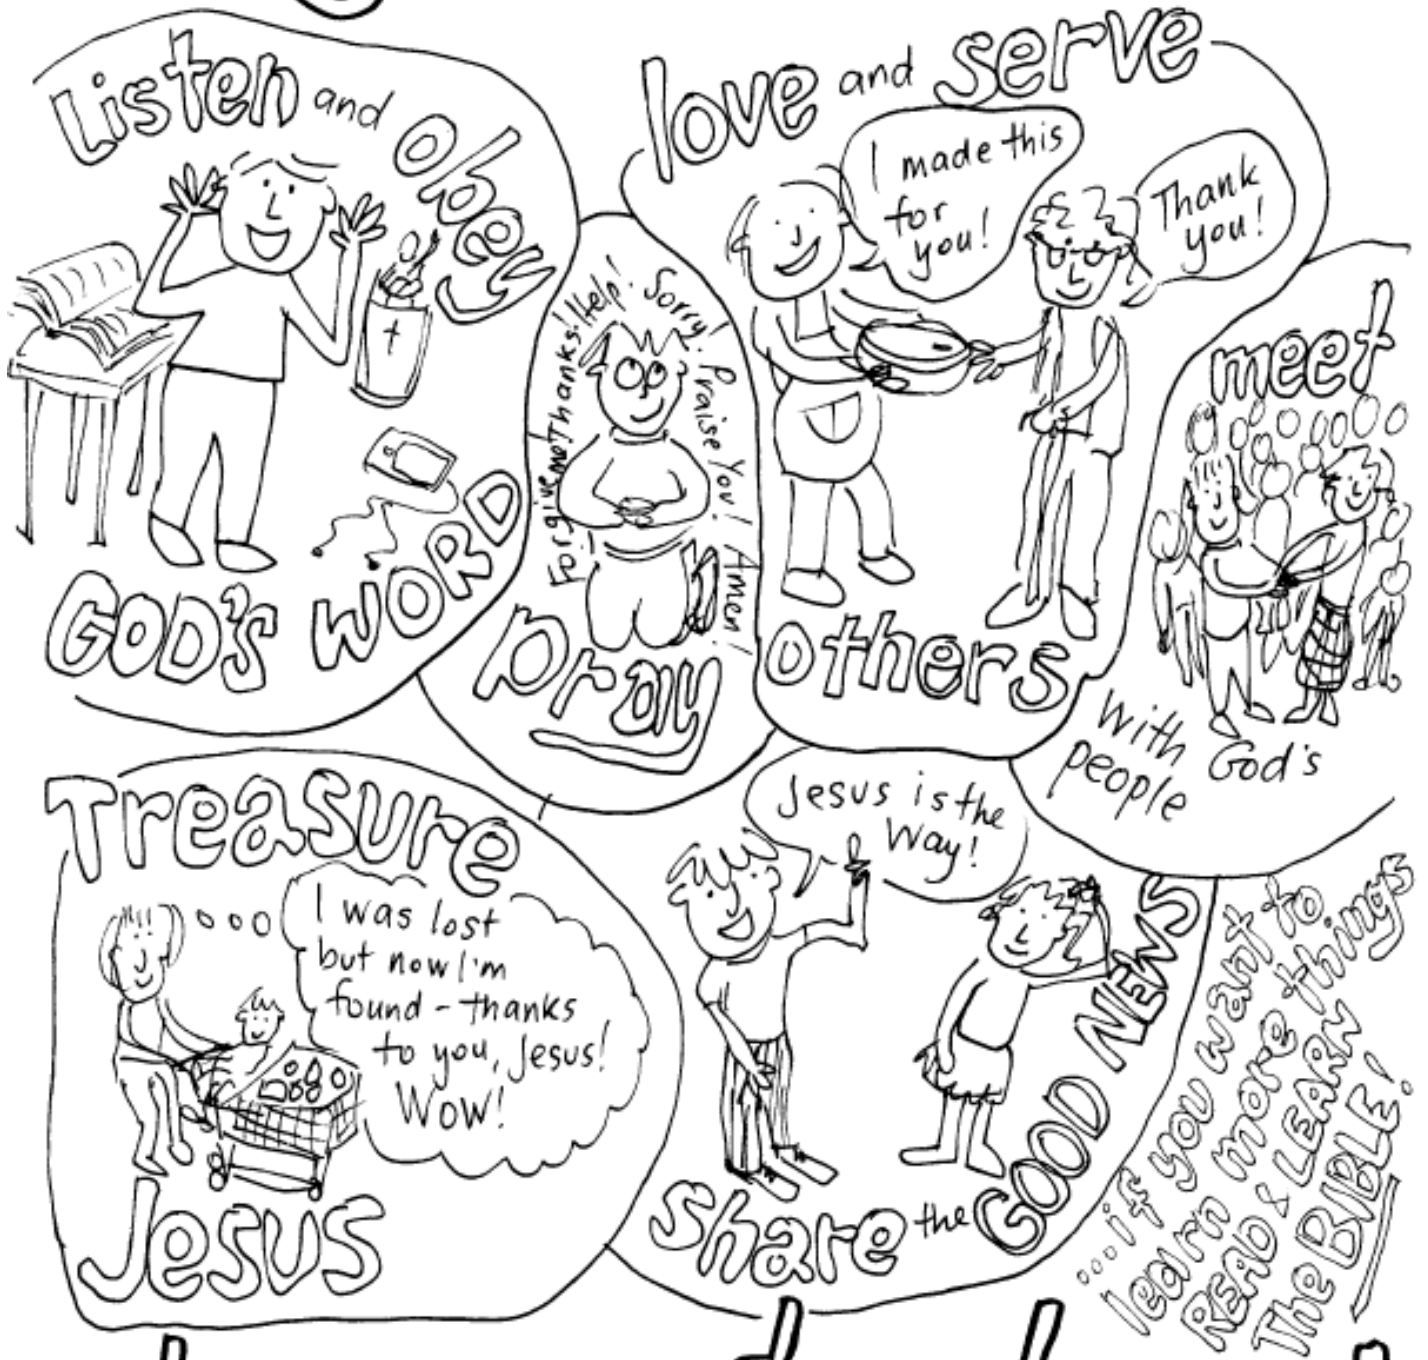 Listen and obey
GOD'S WORD
Forgive me Thanks! Help! Sorry! Praise You! Amen!
pray
love and serve
I made this
for
you!
Thank
you!
others
meet
With God's
people
Treasure
I was lost
but now I'm
found - thanks
to you, Jesus!
WOW!
Jesus
Jesus is the
Way!
Share the GOOD NEWS
...if you want to
learn more things
READ & LEARN
The BIBLE!